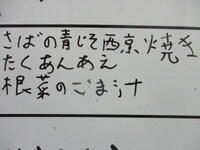 さばの青じそ西京焼き
たくあんあえ
根菜のごま汁